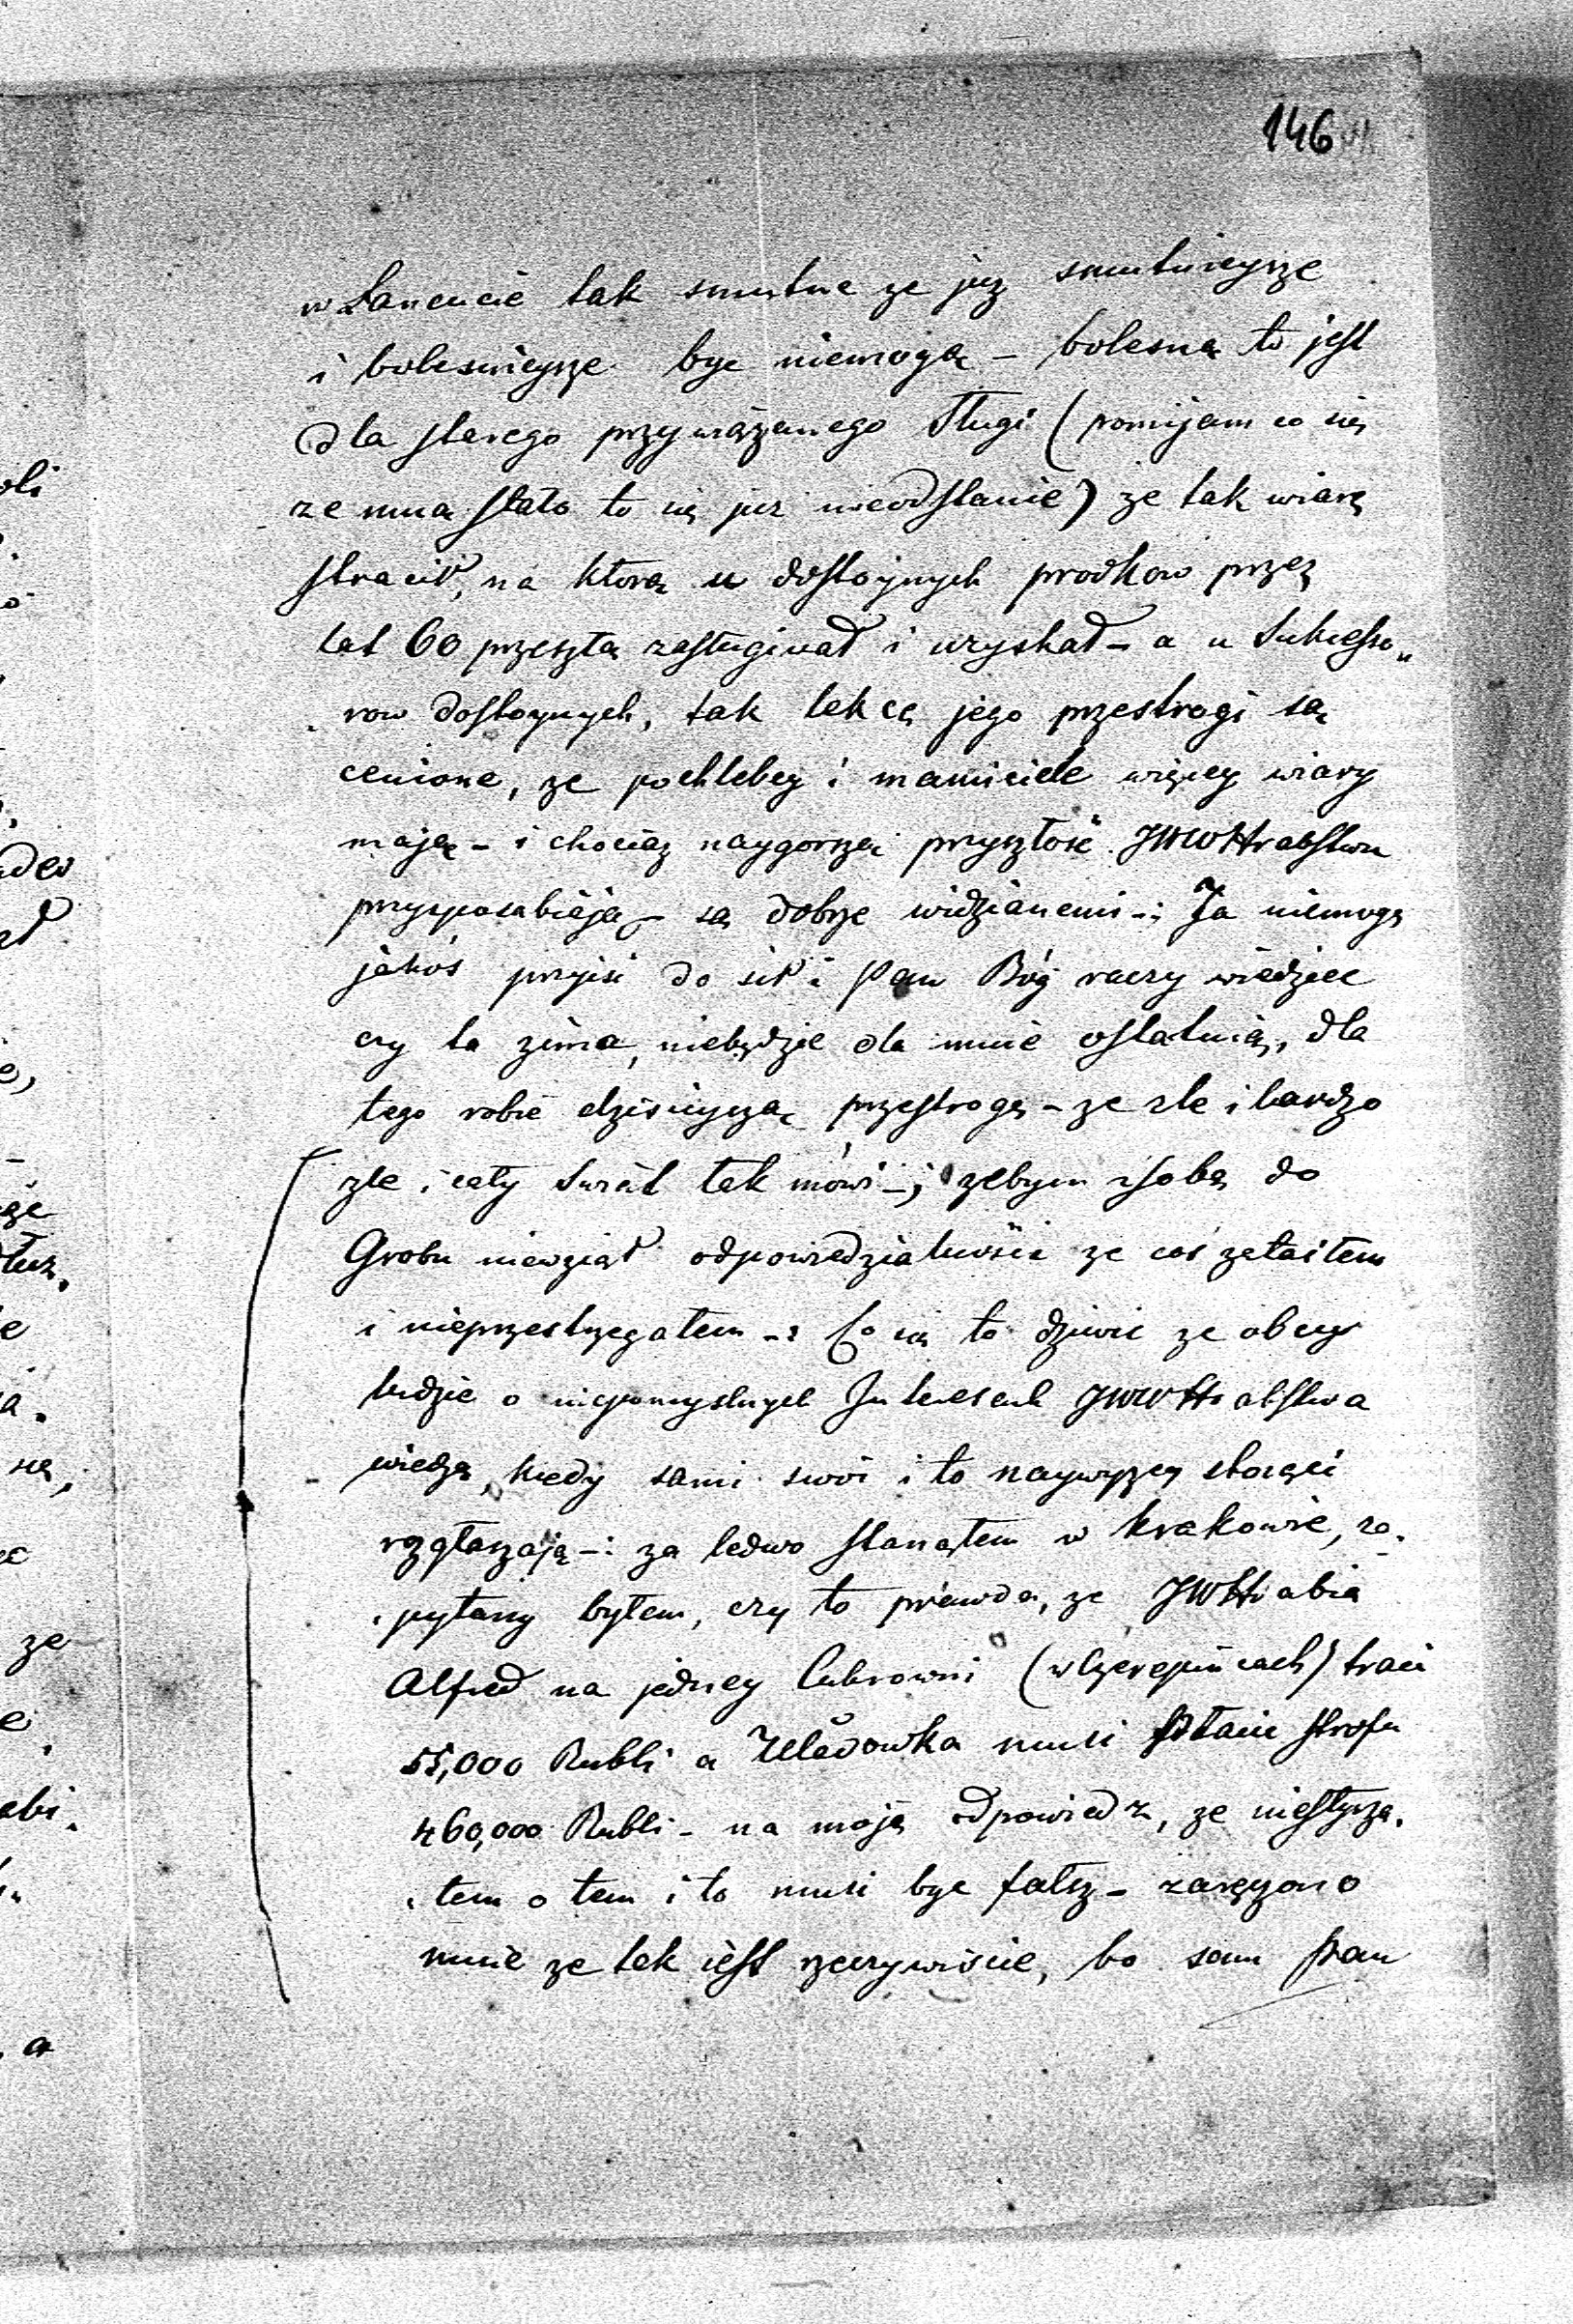 146
w Łancucie tak smutne ze juz smutnieysze
i bolesnieysze byc niemogą – bolesną to jest
dla starego przywiązanego Sługi (pomijam co się
ze mną stało to się juz nieodstanie) ze tak wiarę
stracił, na ktorą u dostojnych prodkow przez
lat 60 przeszła zasługiwał i uzyskał – a u Sukcesso„
row dostoynych, tak lekce jego przestrogi są
cenione, ze pochlebcy i mamiciele więcey wiary
mają – i chociaz naygorszą przyszłość JWWHrabstwu
przysposabiają – są dobrze widzianemi –: Ja niemogę
jakoś przyisc do sił i Pan Bóg raczy wiedziec
czy ta zima, niebędzie dla mnie ostatnią, dla
tego robie dzisieyszą przestrogę – ze zle i bardzo
zle i cały Swiat tak mówi –; zebym z sobą do
Grobu niewziął odpowiedzialnośći ze coś zataiłem
i nieprzestrzegałem –: Co się to dziwic ze obcy
ludzie o niepomyslnych Interesach JWWHrabstwa
wiedzą, kiedy sami swoi i to naywyzey stojąći
rozgłaszają –: za ledwo stanąłem w Krakowie, za.
pytany byłem, czy to prawda, ze JWHrabia
Alfred na jedney Cukrowni (w Czerepińcach) traci
55,000 Rubli a Uładowka musi płacic strofu
460,000 Rubli – na moją odpowiedz, ze niesłysza.
łem o tem i to musi byc fałsz – zaręczono
mnie ze tak iest rzeczywiscie, bo sam Pan
oli
e,
ze
e
abi.
a